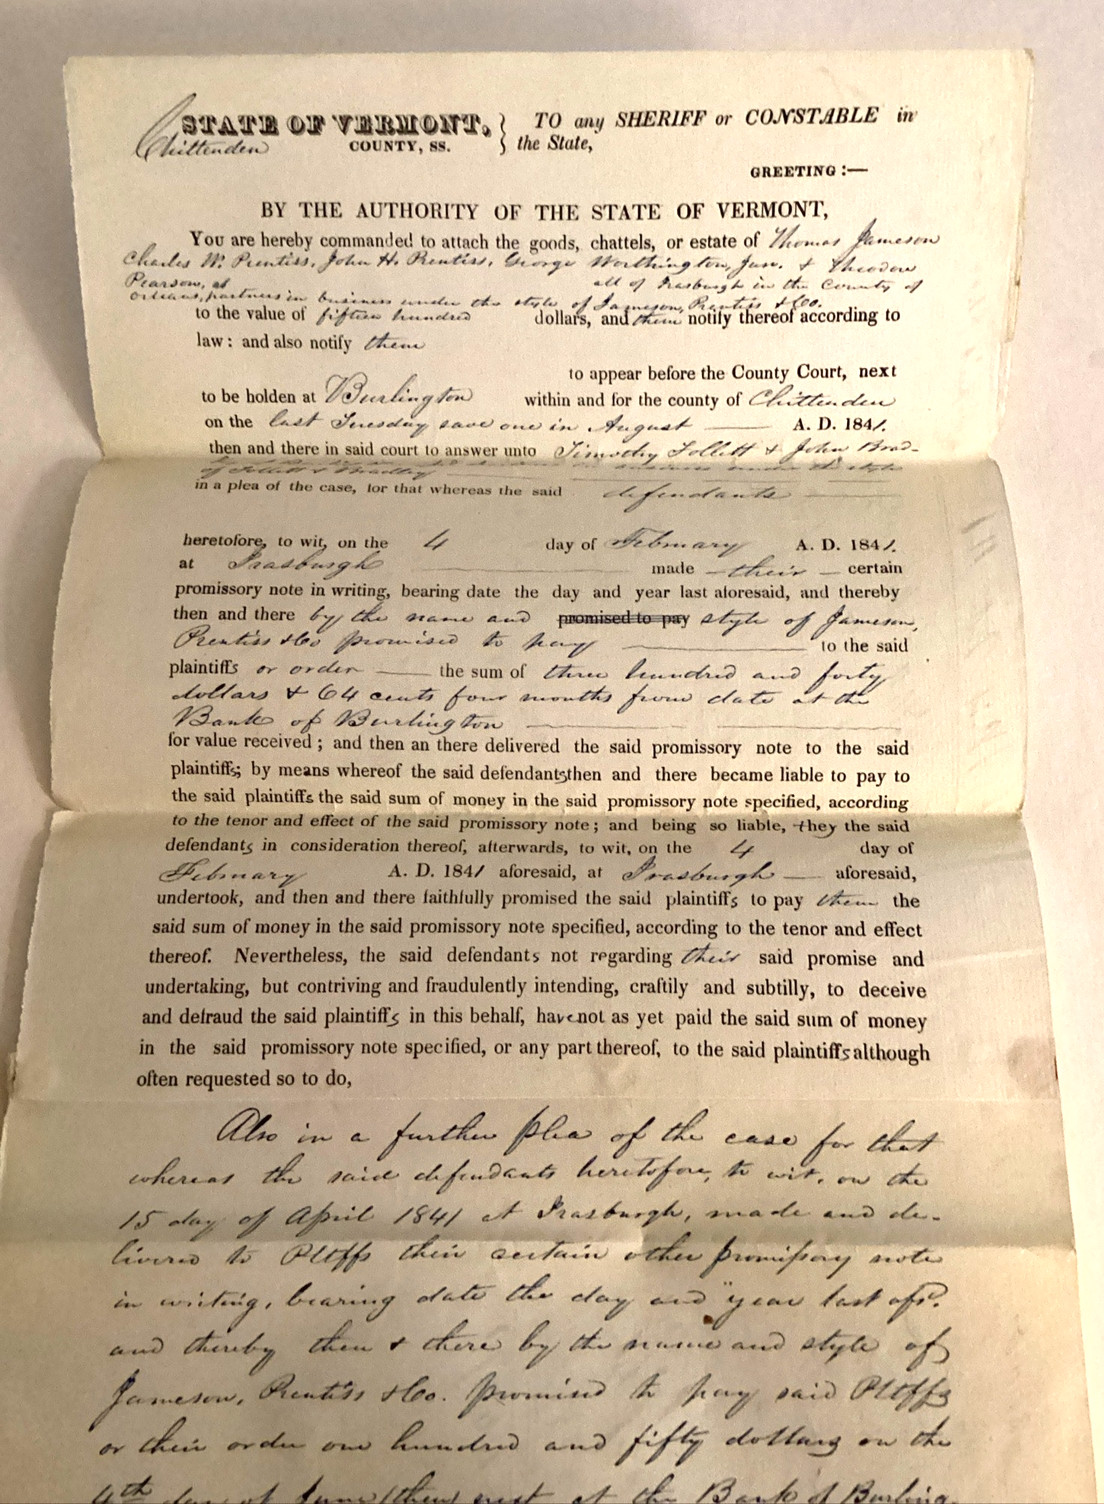 STATE OF VERMONT, } TO any SHERIFF or CONSTABLE in
Chittenden COUNTY, SS. } the State,
GREETING :—
BY THE AUTHORITY OF THE STATE OF VERMONT,
You are hereby commanded to attach the goods, chattels, or estate of Thomas Jameson
Charles W. Prentiss, John H. Prentiss, George Worthington, Jun. & Theodore
Pearson, all of Irasburgh in the County of
Orleans, partners in business under the style of Jameson, Prentiss & Co.
to the value of fifteen hundred dollars, and them notify thereof according to
law: and also notify them
to appear before the County Court, next
to be holden at Burlington within and for the county of Chittenden
on the last Tuesday save one in August —— A. D. 1841.
then and there in said court to answer unto Timothy Follett & John Brad-
of Follett & Bradley in business under the style
in a plea of the case, for that whereas the said defendants ——
heretofore, to wit, on the 4 day of February A. D. 1841.
at Irasburgh —— made — their — certain
promissory note in writing, bearing date the day and year last aforesaid, and thereby
then and there by the name and promised to pay style of Jameson,
Prentiss & Co promised to pay —— to the said
plaintiffs or order —— the sum of three hundred and forty
dollars & 64 cents four months from date at the
Bank of Burlington ——
for value received; and then an there delivered the said promissory note to the said
plaintiffs; by means whereof the said defendants then and there became liable to pay to
the said plaintiffs the said sum of money in the said promissory note specified, according
to the tenor and effect of the said promissory note; and being so liable, they the said
defendants in consideration thereof, afterwards, to wit, on the 4 day of
February A. D. 1841 aforesaid, at Irasburgh — aforesaid,
undertook, and then and there faithfully promised the said plaintiffs to pay them the
said sum of money in the said promissory note specified, according to the tenor and effect
thereof. Nevertheless, the said defendants not regarding their said promise and
undertaking, but contriving and fraudulently intending, craftily and subtilly, to deceive
and defraud the said plaintiffs in this behalf, have not as yet paid the said sum of money
in the said promissory note specified, or any part thereof, to the said plaintiffs although
often requested so to do,
Also in a further plea of the case for that
whereas the said defendants heretofore, to wit, on the
15 day of April 1841 at Irasburgh, made and de-
livered to Pltffs their certain other promissory note
in writing, bearing date the day and year last afsd.
and thereby then & there by the name and style of
Jameson, Prentiss & Co. promised to pay said Pltffs
or their order one hundred and fifty dollars on the
4th day of June then next at the Bank of Burling